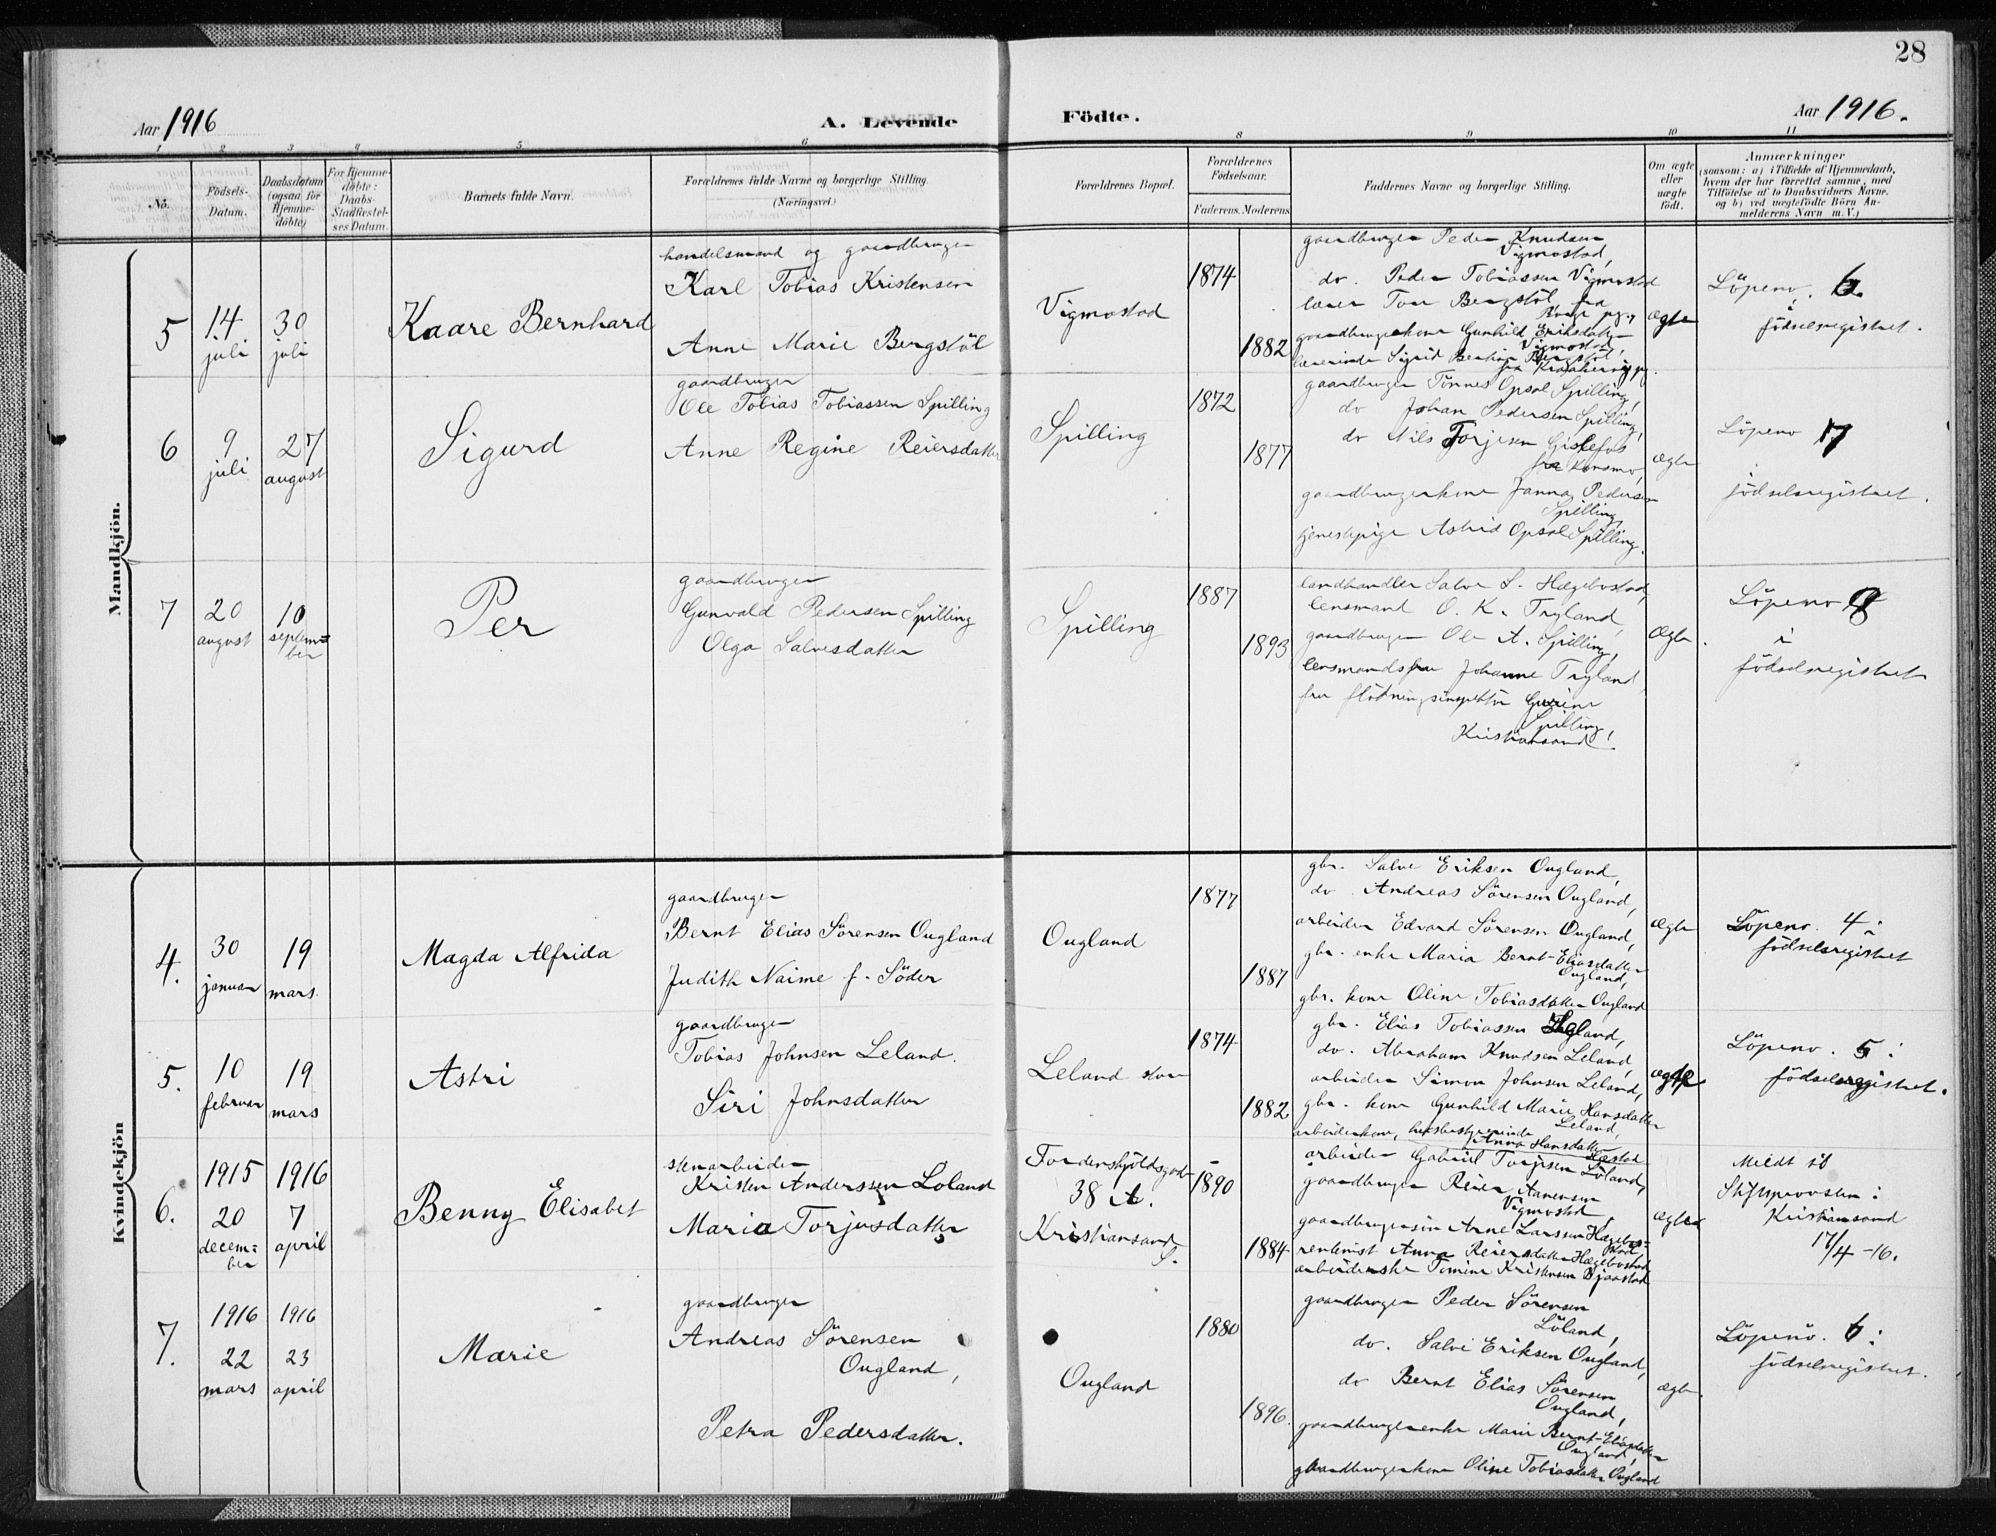 28
Aar 1916
A. Levende Födte.
Aar 1916.
1 2 3 4 5 6 8 9 10 11
No.
Födsels-
Datum.
Daabsdatum
(ogsaa for
Hjemme-
döbte)
For Hjemme-
döbte:
Daabs-
Stadfæstel-
ses Datum.
Barnets fulde Navn.
Forældrenes fulde Navne og borgerlige Stilling.
(Næringsvei.)
Forældrenes Bopæl.
Forældrenes
Födselsaar.
Faderens. Moderens
Faddernes Navne og borgerlige Stilling.
Om ægte
eller
uægte
födt.
Anmærkninger
(saasom: a) i Tilfælde af Hjemmedaab,
hvem der har forrettet samme, med
Tilföielse af to Daabsvidners Navne,
og b) ved uægtefödte Börn An-
melderens Navn m. V.)
Mandkjön.
5
14
juli
30
juli
Kaare Bernhard
handelsmand og gaardbruger
Karl Tobias Kristensen
Anne Marie Bergstöl
Vigmostad
1874
1882
gaardbruger Peder Knudsen
Vigmostad,
do. Peder Tobiassen Vigmostad
lærer Tom Bergstöl, fra
gaardbrugerkone Gunhild Eriksdatter
Vigmostad,
lærerinde Sigrid Bergstöl
ægte
Löpeno. 6
i
födselsregistret.
6
9
juli
27
august
Sigurd
gaardbruger
Ole Tobias Tobiassen Spilling
Anne Regine Reiersdatter
Spilling
1872
1877
gaardbruger Tönnes Opsal Spilling,
do Johan Pedersen Spilling,
do Nils Torjesen Gislefos
fra Konsmo,
gaardbrugerkone Janna Pedersen
Spilling
tjenestepige Astrid Opsal Spilling.
ægte
Löpeno 7
i
födselsregistret.
7
20
august
10
septem=
ber
Per
gaardbruger
Gunvald Pedersen Spilling
Olga Salvesdatter
Spilling
1887
1893
landhandler Salve S. Hægebostad,
lensmand O. K. Tryland,
gaardbruger Ole A. Spilling,
lensmandsfru Johanne Tryland,
fru flötningsinspektör Gurine
Spilling,
Kristiansand.
Ægte
Löpeno 8
i
födselsregistret
Kvindekjön
4.
30
januar
19
mars.
Magda Alfrida
gaardbruger
Bernt Elias Sörensen Ougland
Judith Naime f. Söder
Ougland
1877
1887
gbr. Salve Eriksen Ougland,
do. Andreas Sörensen Ougland,
arbeider Edvard Sörensen Ougland,
gbr. enke Maria Bernt-Eliasdatter
Ougland,
gbr. kone Oline Tobiasdatter Ougland
ægte
Löpeno. 4 i
födselsregistret
5.
10
februar
19
mars
Astri
gaardbruger
Tobias Johnsen Leland.
Siri Johnsdatter
Leland stor
1874
1882
gbr. Elias Tobiassen
do. Abraham Knudsen Leland,
arbeider Simon Johnsen Leland,
gbr. kone Gunhild Marie Hansdatter
Leland,
arbeiderkone,
Anna Hansdatter
ægte
Löpeno. 5 i
födselsregistret.
6.
1915
20
decem=
ber
1916
7
april
Benny Elisabet
stenarbeider
Kristen Anderssen Loland
Maria Torjusdatter
Tordenskjoldsgade
38 A.
Kristiansand
S.
1890
1884
arbeider Gabriel Torjesen Löland,
gaardbruger Reier Aanensen
Vigmostad,
gaardbrugersön Arne Larssen Hægebo-
stad,
rentenist Anna Reiersdatter Hægebostad
arbeiderske Tomine Kristensen Bjaastad
ægte
Meldt til
Stiftsprovsten i
Kristiansand
17/4 -16.
7.
1916
22
mars
1916
23
april
Marie
gaardbruger
Andreas Sörensen
Ougland,
Petra Pedersdatter.
Ougland
1880
1896.
gaardbruger Peder Sörensen
Löland,
do. Salve Eriksen Ougland,
do Bernt Elias Sörensen
Ougland,
gaardbrugerenke Marie Bernt-Eliasdatter
Ougland,
gaardbrugerkone Oline Tobiasdatter Ougland
ægte
Löpeno. 6 i
födselsregistret.